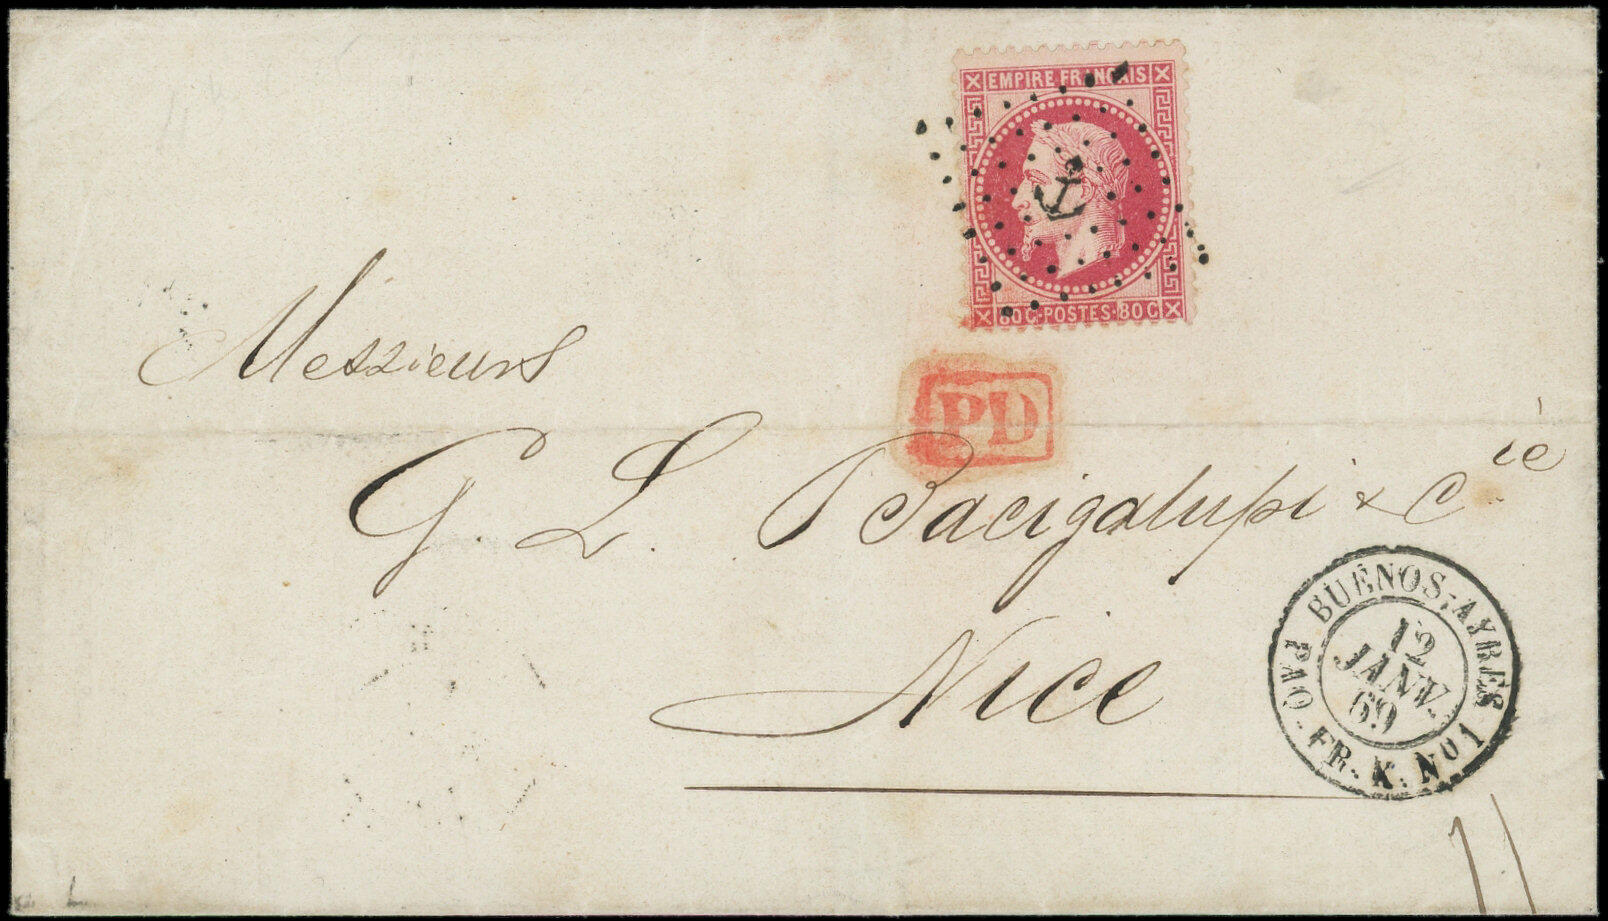 EMPIRE FRANÇAIS
80 C·POSTES·80 C
Messieurs
PD
G. L. Bacigalupi & Cie
Nice
BUENOS-AYRES
12
JANV.
69
PAQ. FR. K. No 1